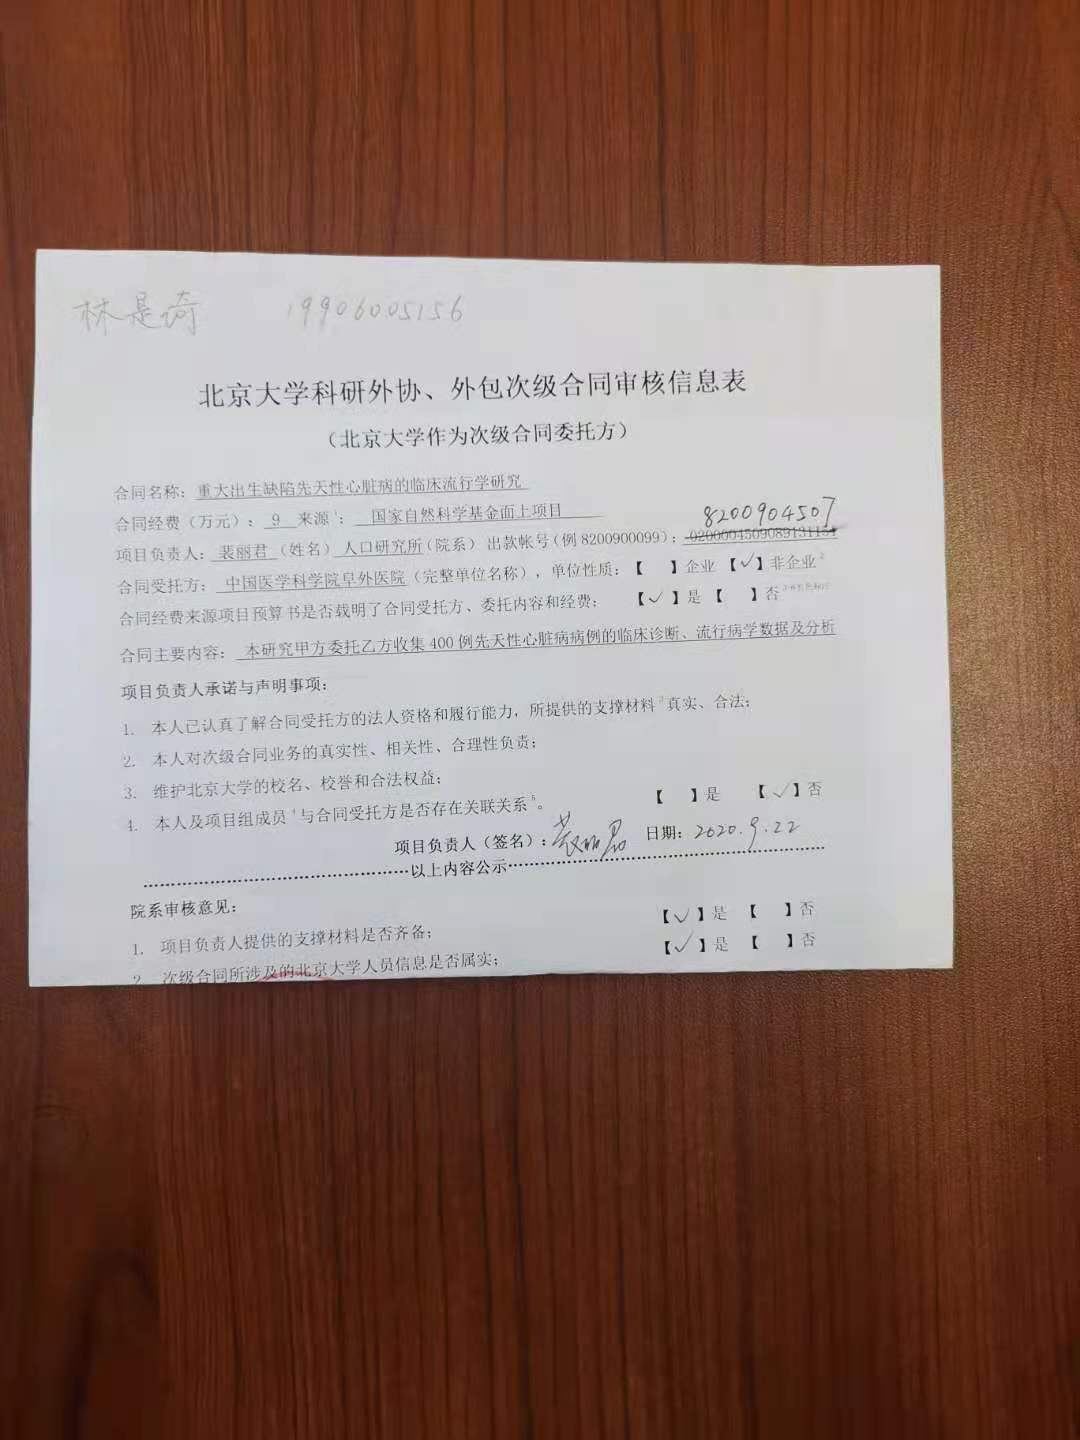 林是琦 19906005156
北京大学科研外协、外包次级合同审核信息表
（北京大学作为次级合同委托方）
合同名称：重大出生缺陷先天性心脏病的临床流行学研究
合同经费（万元）：9 来源1：国家自然科学基金面上项目
8200904507
项目负责人：裴丽君（姓名）人口研究所（院系）出款帐号（例8200900099）：0200004509089131151
合同受托方：中国医学科学院阜外医院（完整单位名称），单位性质：【 】企业【✓】非企业2
合同经费来源项目预算书是否载明了合同受托方、委托内容和经费；【✓】是【 】否
合同主要内容：本研究甲方委托乙方收集400例先天性心脏病病例的临床诊断、流行病学数据及分析
项目负责人承诺与声明事项：
1. 本人已认真了解合同受托方的法人资格和履行能力，所提供的支撑材料3真实、合法；
2. 本人对次级合同业务的真实性、相关性、合理性负责；
3. 维护北京大学的校名、校誉和合法权益；
4. 本人及项目组成员4与合同受托方是否存在关联关系5。【 】是【✓】否
项目负责人（签名）：裴丽君 日期：2020.9.22
以上内容公示
院系审核意见：
1. 项目负责人提供的支撑材料是否齐备；【✓】是【 】否
2. 次级合同所涉及的北京大学人员信息是否属实；【✓】是【 】否